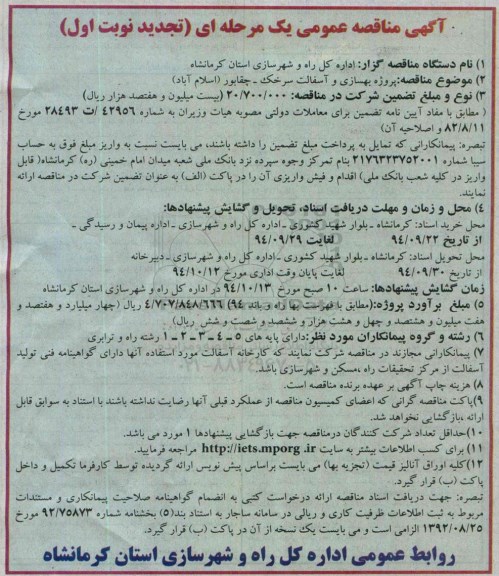 آگهی مناقصه عمومی یک مرحله ای (تجدید نوبت اول)
۱) نام دستگاه مناقصه گزار: اداره کل راه و شهرسازی استان کرمانشاه
۲) موضوع مناقصه:پروژه بهسازی و آسفالت سرخک ـ چقابور (اسلام آباد)
۳) نوع و مبلغ تضمین شرکت در مناقصه: ۲۰/۷۰۰/۰۰۰ (بیست میلیون و هفتصد هزار ریال)
( مطابق با مفاد آیین نامه تضمین برای معاملات دولتی مصوبه هیات وزیران به شماره ۴۲۹۵۶ /ت ۲۸۴۹۳ مورخ
۸۲/۸/۱۱ و اصلاحیه آن)
تبصره: پیمانکارانی که تمایل به پرداخت مبلغ تضمین را داشته باشند، می بایست نسبت به واریز مبلغ فوق به حساب
سیبا شماره ۲۱۷۶۳۲۳۷۵۲۰۰۱ بنام تمرکز وجوه سپرده نزد بانک ملی شعبه میدان امام خمینی (ره) کرمانشاه( قابل
واریز در کلیه شعب بانک ملی) اقدام و فیش واریزی آن را در پاکت (الف) به عنوان تضمین شرکت در مناقصه ارائه
نمایند.
۴) محل و زمان و مهلت دریافت اسناد، تحویل و گشایش پیشنهادها:
محل خرید اسناد: کرمانشاه ـ بلوار شهید کشوری ـ اداره کل راه و شهرسازی ـ اداره پیمان و رسیدگی ـ
از تاریخ ۹۴/۰۹/۲۲ لغایت ۹۴/۰۹/۲۹
محل تحویل اسناد: کرمانشاه ـ بلوار شهید کشوری ـ اداره کل راه و شهرسازی ـ دبیرخانه
از تاریخ ۹۴/۰۹/۳۰ لغایت پایان وقت اداری مورخ ۹۴/۱۰/۱۲
زمان گشایش پیشنهادها: ساعت ۱۰ صبح مورخ ۹۴/۱۰/۱۳ در اداره کل راه و شهرسازی استان کرمانشاه
۵) مبلغ برآورد پروژه:(مطابق با فهرست بها راه و باند ۹۴) ۴/۷۰۷/۸۴۸/۶۶۶ ریال (چهار میلیارد و هفتصد و
هفت میلیون و هشتصد و چهل و هشت هزار و ششصد و شصت و شش ریال)
۶) رشته و گروه پیمانکاران مورد نظر:دارای پایه های ۵ ـ ۴ ـ ۳ ـ ۲ ـ ۱ رشته راه و ترابری
۷) پیمانکارانی مجازند در مناقصه شرکت نمایند که کارخانه آسفالت مورد استفاده آنها دارای گواهینامه فنی تولید
آسفالت از مرکز تحقیقات راه ،مسکن و شهرسازی باشد.
۸) هزینه چاپ آگهی بر عهده برنده مناقصه است.
۹)پاکت مناقصه گرانی که اعضای کمیسیون مناقصه از عملکرد قبلی آنها رضایت نداشته باشند با استناد به سوابق قابل
ارائه ،بازگشایی نخواهد شد.
۱۰)حداقل تعداد شرکت کنندگان درمناقصه جهت بازگشایی پیشنهادها ۱ مورد می باشد.
۱۱) برای کسب اطلاعات بیشتر به سایت http://iets.mporg.ir مراجعه فرمایید.
۱۲)کلیه اوراق آنالیز قیمت (تجزیه بها) می بایست براساس پیش نویس ارائه گردیده توسط کارفرما تکمیل و داخل
پاکت (ب) قرار گیرد.
تبصره: جهت دریافت اسناد مناقصه ارائه درخواست کتبی به انضمام گواهینامه صلاحیت پیمانکاری و مستندات
مربوط به ثبت اطلاعات ظرفیت کاری و ریالی در سامانه ساجار به استناد بند(۵) بخشنامه شماره ۹۲/۷۵۸۷۳ مورخ
۱۳۹۲/۰۸/۲۵ الزامی است و می بایست یک نسخه از آن در پاکت (ب) قرار گیرد.
روابط عمومی اداره کل راه و شهرسازی استان کرمانشاه